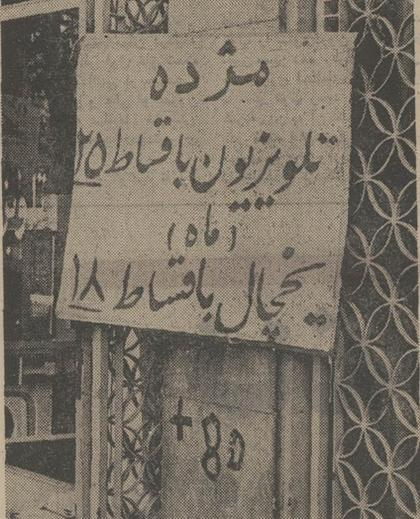 مژده
تلویزیون باقساط ۲۵
(ماه)
یخچال باقساط ۱۸